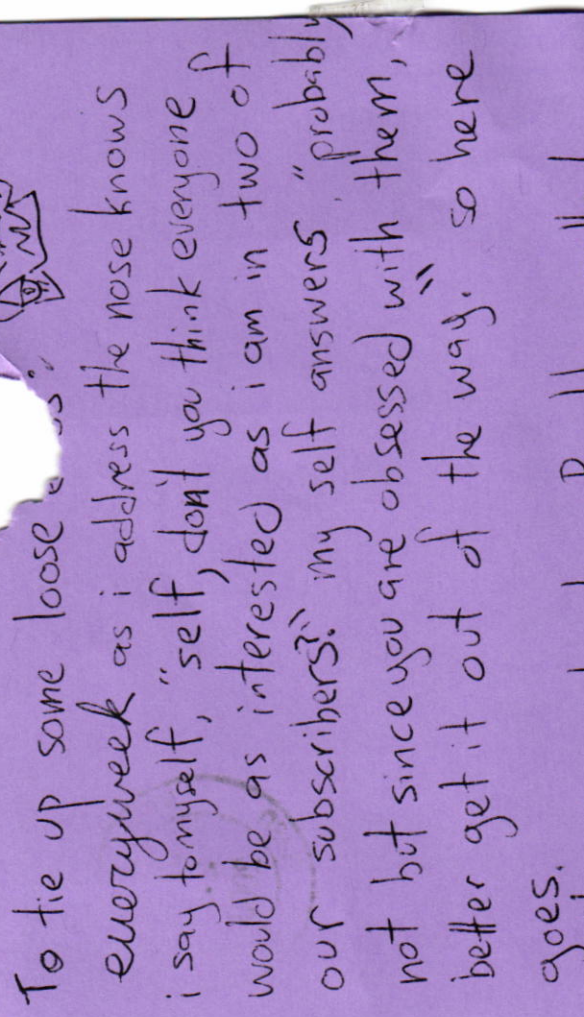 To tie up some loose
everyweek as i address the nose knows
i say to myself, "self, don't you think everyone
would be as interested as i am in two of
our subscribers?" my self answers, "probably
not but since you are obsessed with them,
better get it out of the way." so here
goes.